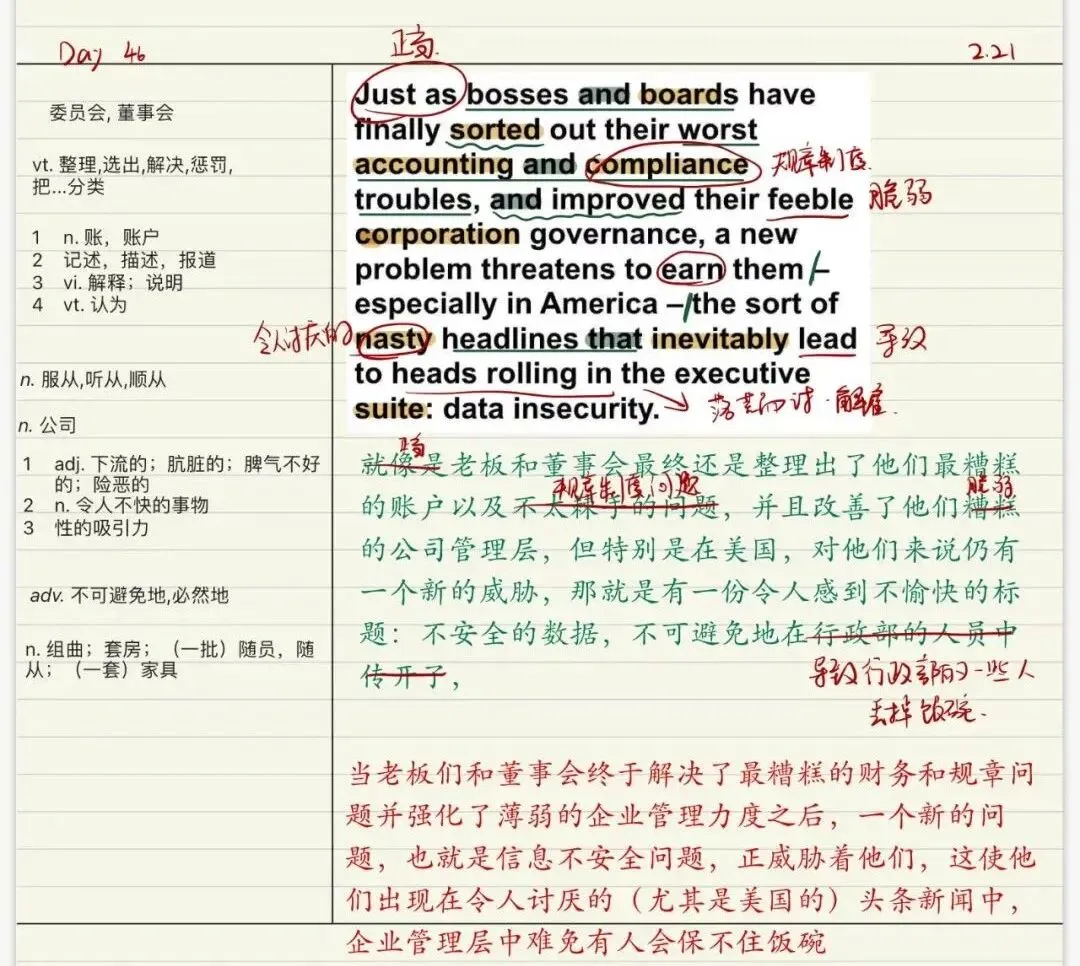 Day 46
正当.
2.21
委员会, 董事会
vt. 整理,选出,解决,惩罚,
把...分类
1 n. 账，账户
2 记述，描述，报道
3 vi. 解释；说明
4 vt. 认为
n. 服从,听从,顺从
n. 公司
1 adj. 下流的；肮脏的；脾气不好
的；险恶的
2 n. 令人不快的事物
3 性的吸引力
adv. 不可避免地,必然地
n. 组曲；套房；（一批）随员，随
从；（一套）家具
Just as bosses and boards have
finally sorted out their worst
accounting and compliance
规章制度.
troubles, and improved their feeble
脆弱
corporation governance, a new
problem threatens to earn them –
especially in America – the sort of
令人讨厌的
nasty headlines that inevitably lead
导致
to heads rolling in the executive
suite: data insecurity.
解雇.
正当
就像是老板和董事会最终还是整理出了他们最糟糕
规章制度问题
脆弱
的账户以及不太棘手的问题，并且改善了他们糟糕
的公司管理层，但特别是在美国，对他们来说仍有
一个新的威胁，那就是有一份令人感到不愉快的标
题：不安全的数据，不可避免地在行政部的人员中
传开了，
导致行政部的一些人
丢掉饭碗.
当老板们和董事会终于解决了最糟糕的财务和规章问
题并强化了薄弱的企业管理力度之后，一个新的问
题，也就是信息不安全问题，正威胁着他们，这使他
们出现在令人讨厌的（尤其是美国的）头条新闻中，
企业管理层中难免有人会保不住饭碗